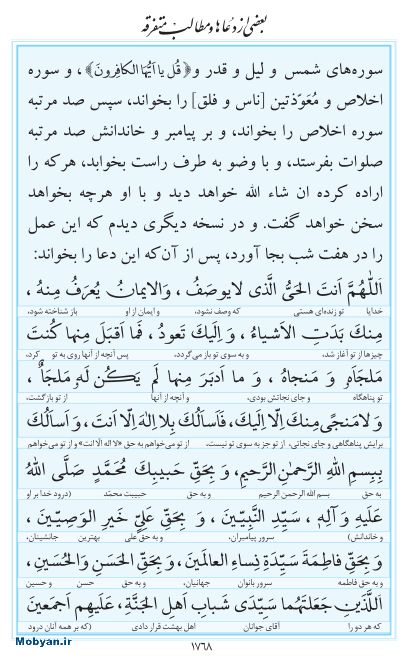 بعضی از دعاها و مطالب متفرقه
سوره‌های شمس و لیل و قدر و﴿قُل یا اَیُّهَا الکافِرونَ﴾، و سوره
اخلاص و مُعَوِّذتین [ناس و فلق] را بخواند، سپس صد مرتبه
سوره اخلاص را بخواند، و بر پیامبر و خاندانش صد مرتبه
صلوات بفرستد، و با وضو به طرف راست بخوابد، هرکه را
اراده کرده ان شاء الله خواهد دید و با او هرچه بخواهد
سخن خواهد گفت. و در نسخه دیگری دیدم که این عمل
را در هفت شب بجا آورد، پس از آن‌که این دعا را بخواند:
اَللّٰهُمَّ اَنتَ الحَیُّ الَّذی لایوصَفُ ، وَالایمانُ یُعرَفُ مِنهُ ،
خدایا تو زنده‌ای هستی که وصف نشود، و ایمان از او باز شناخته شود،
مِنکَ بَدَتِ الاَشیاءُ ، وَ اِلَیکَ تَعودُ ، فَما اَقبَلَ مِنها کُنتَ
چیزها از تو آغاز شد، و به سوی تو باز می‌گردد، پس آنچه از آنها روی به تو کرد،
مَلجَاَهُ وَ مَنجاهُ ، وَ ما اَدبَرَ مِنها لَم یَکُن لَهُ مَلجَأٌ
تو پناهگاه و جای نجاتش بودی، و آنچه از آنها از تو بازگشت،
وَ لامَنجیً مِنکَ اِلّا اِلَیکَ، فَاَسأَلُکَ بِلااِلٰهَ اِلّا اَنتَ ، وَ اَسأَلُکَ
برایش پناهگاهی و جای نجاتی، از تو جز به سوی تو نیست. از تو می‌خواهم به حق «لا اله الّا انت» و از تو می‌خواهم
بِبِسمِ اللّٰهِ الرَّحمٰنِ الرَّحیمِ، وَ بِحَقِّ حَبیبِکَ مُحَمَّدٍ صَلَّی اللّٰهُ
به حق بسم الله الرحمن الرحیم و به حق حبیبت محمّد (درود خدا بر او
عَلَیهِ وَ آلِهِ ، سَیِّدِ النَّبِیّینَ ، وَ بِحَقِّ عَلِیٍّ خَیرِ الوَصِیّینَ ،
و خاندانش) سرور پیامبران، و به حق علی بهترین جانشینان،
وَ بِحَقِّ فاطِمَةَ سَیِّدَةِ نِساءِ العالَمینَ ، وَ بِحَقِّ الحَسَنِ وَالحُسَینِ،
و به حق فاطمه سرور بانوان جهانیان، و به حق حسن و حسین
اَللَّذَینِ جَعَلتَهُما سَیِّدَی شَبابِ اَهلِ الجَنَّةِ ، عَلَیهِم اَجمَعینَ
که هر دو را آقای جوانان اهل بهشت قرار دادی (که بر همه آنان درود
۱۷۶۸
Mobyan.ir